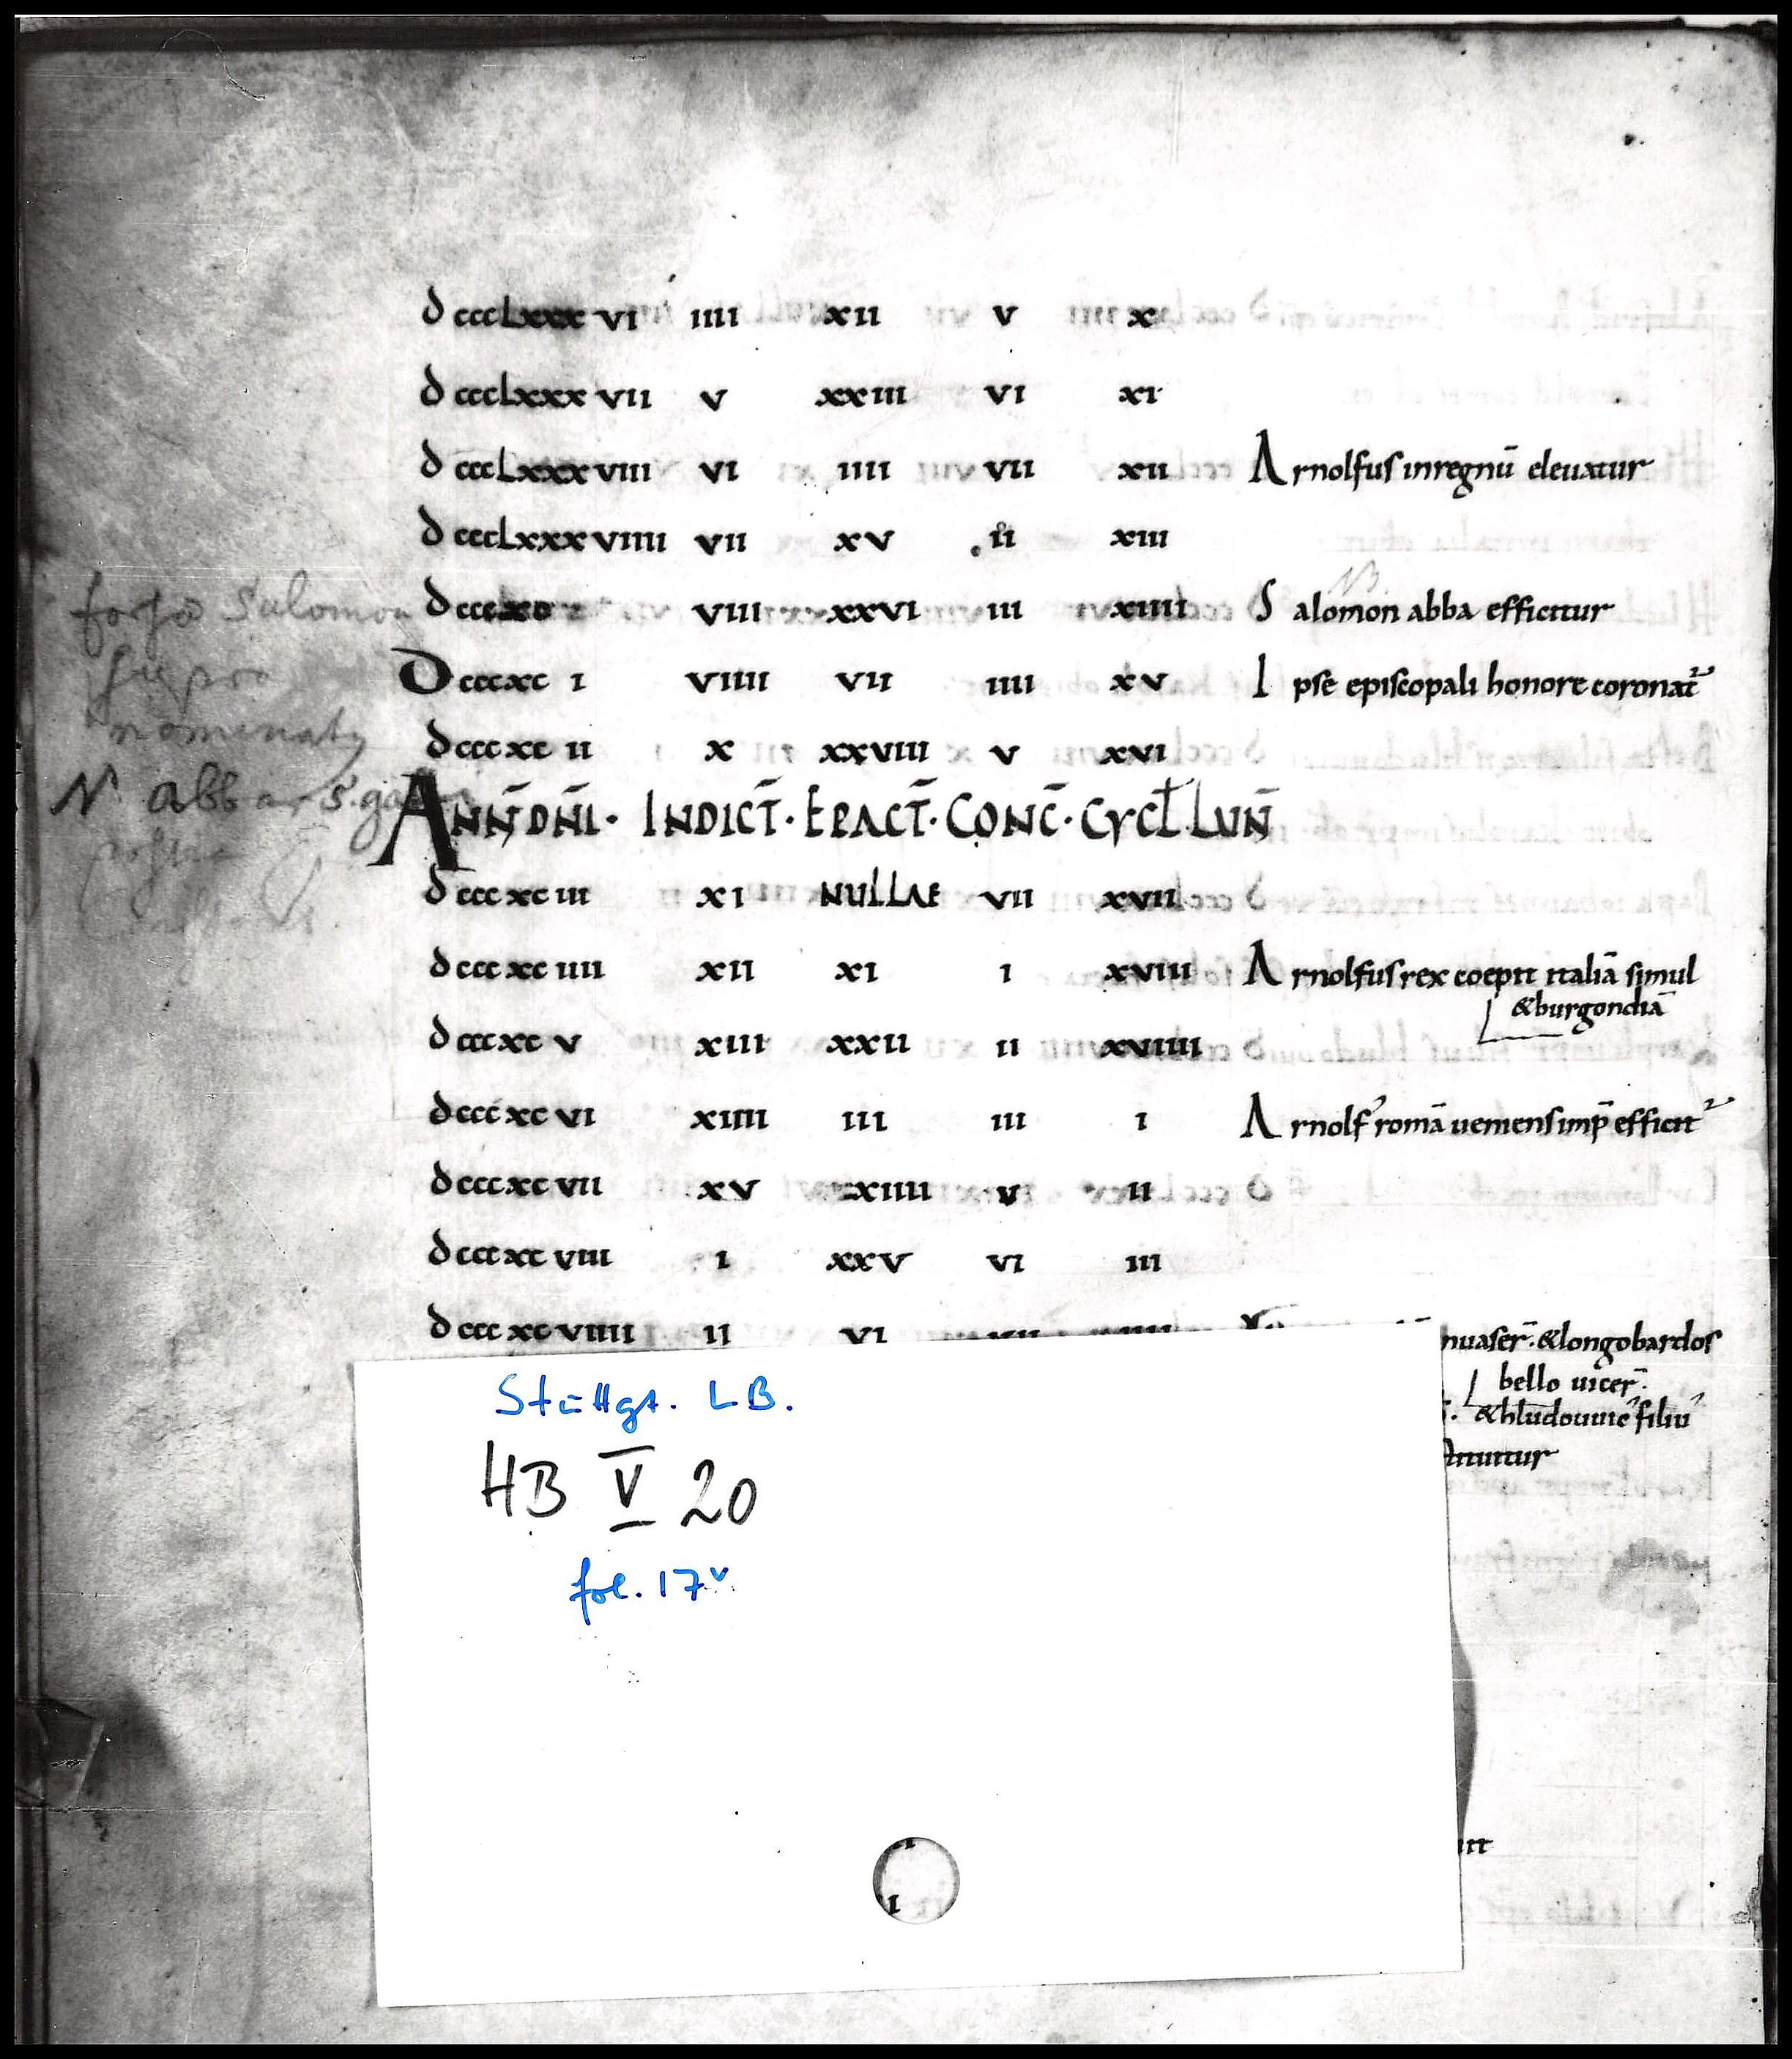 dccclxxx vi iiii xii v x
dccclxxx vii v xxiii vi xi
dccclxxx viii vi iiii vii xii Arnolfus inregnū eleuatur
dccclxxx viiii vii xv ii xiii
NB
dcccxc viii xxvi iii xiiii Salomon abba efficitur
Dcccxc i viiii vii iiii xv Ipse episcopali honore coronat᷑
dcccxc ii x xxviii v xvi
Salomon
nominatꝫ
N. abbas S.
ANN̄ DN̄I · INDICT̄ · EPACT̄ · CONC̄ · CYCL̄ LUN̄
dcccxc iii xi NULLAE vii xvii
dcccxc iiii xii xi i xviii Arnolfus rex coepit italiā simul
&burgondiā
dcccxc v xiii xxii ii xviiii
dcccxc vi xiiii iii iii i Arnolf᾽ romā ueniens imp̄ efficit᷑
dcccxc vii xv xiiii v ii
dcccxc viii i xxv vi iii
dcccxc viiii ii vi nuaser̄. &longobardos
bello uicer̄.
&hludouuic᾽ filiu᾽
tituitur
Stuttgt. LB.
HB V 20
fol. 17v